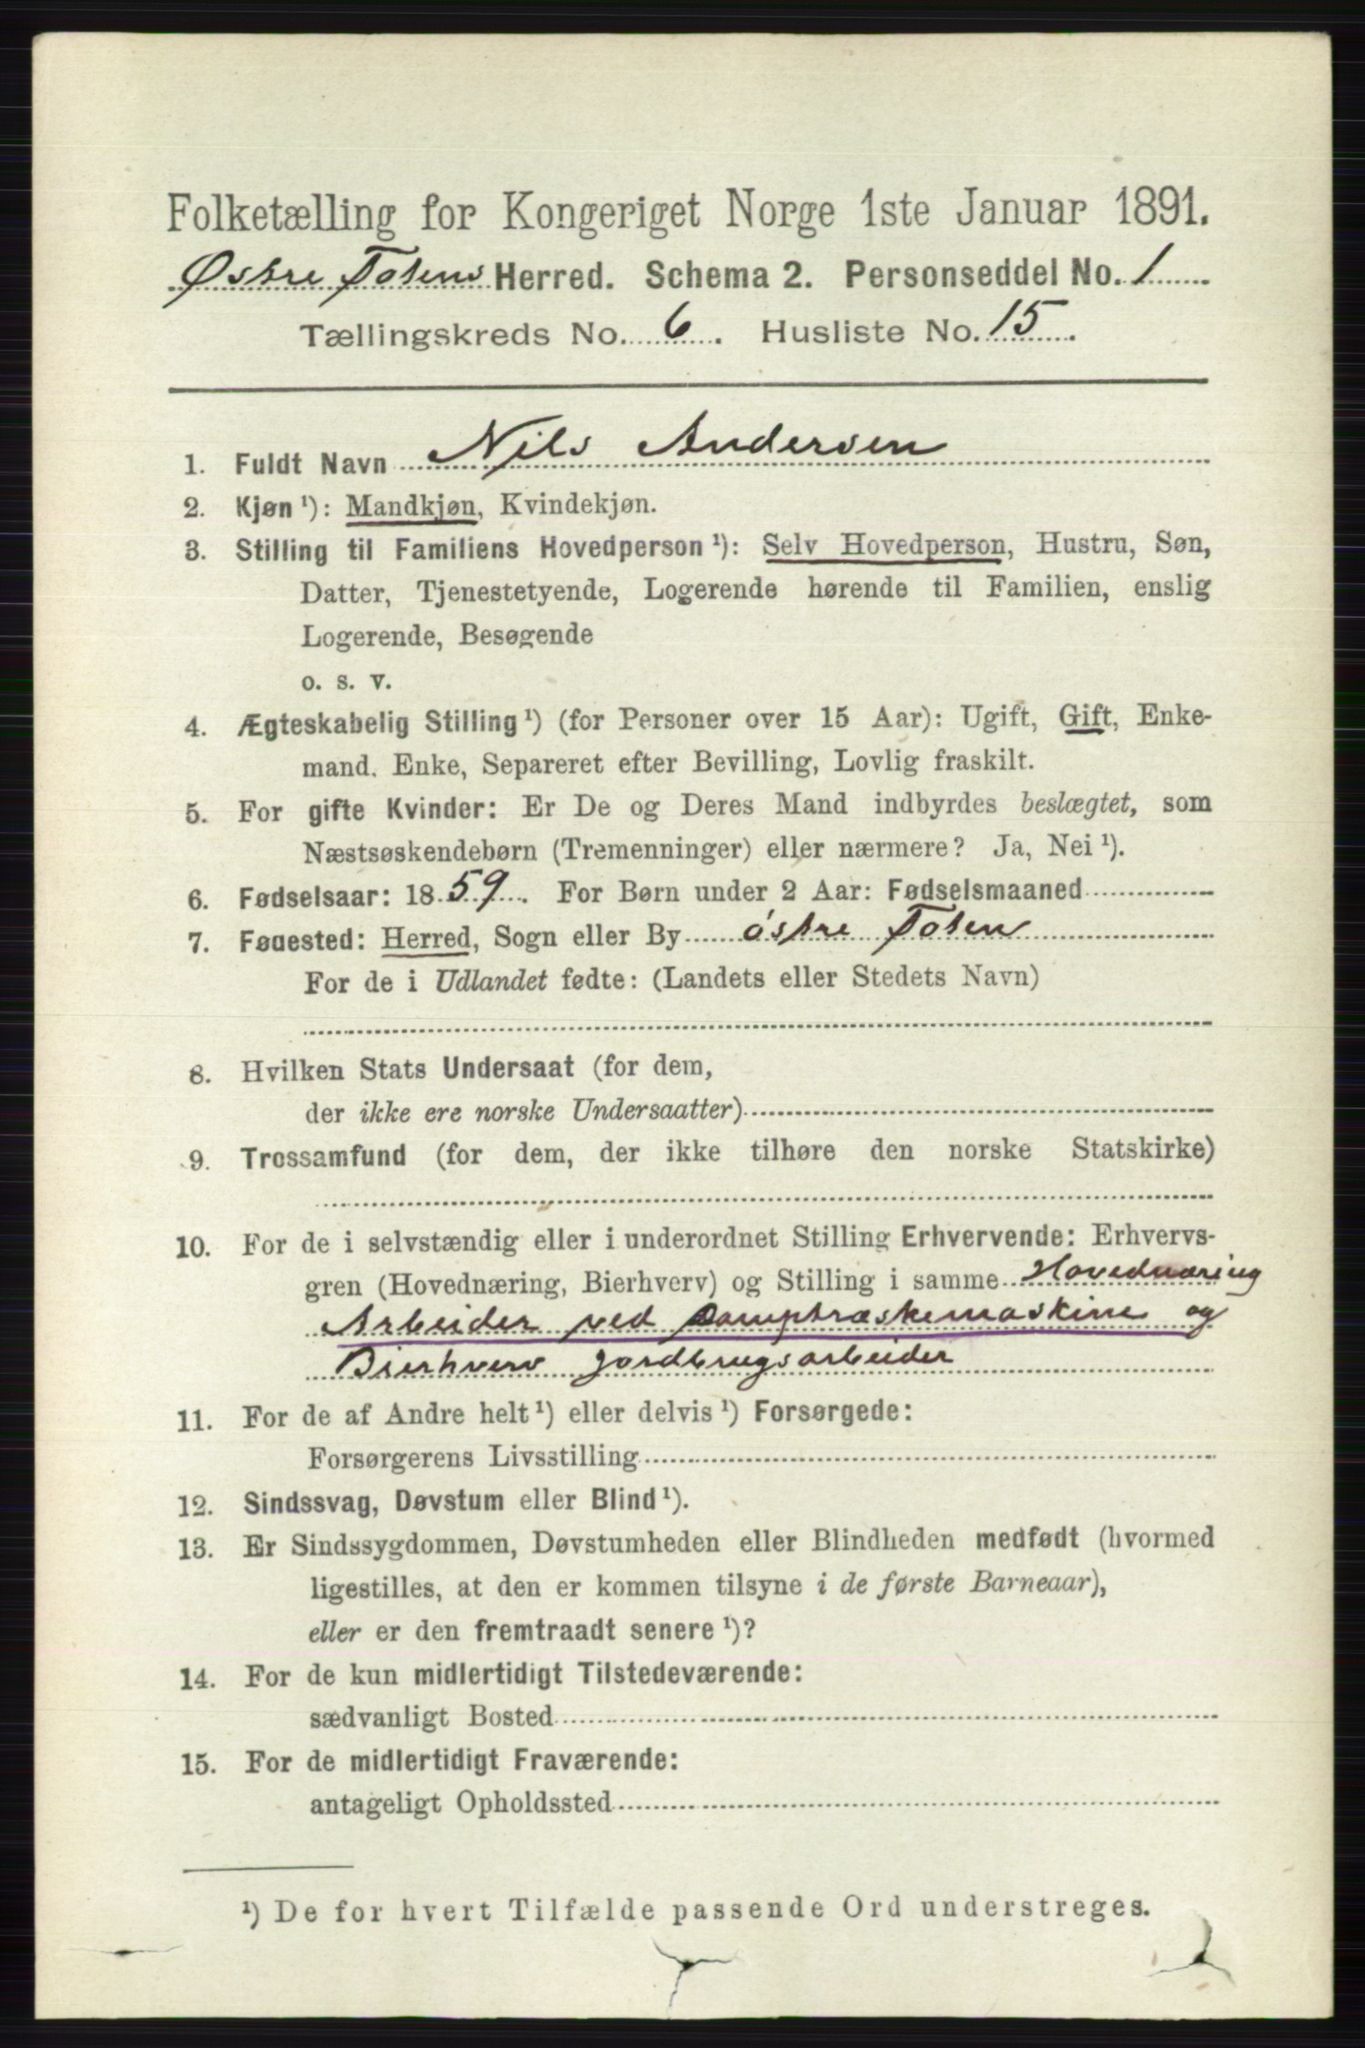 Folketælling for Kongeriget Norge 1ste Januar 1891.
Østre Totens Herred. Schema 2. Personseddel No. 1
Tællingskreds No. 6. Husliste No. 15.
1. Fuldt Navn Nils Andersen
2. Kjøn ¹): Mandkjøn, Kvindekjøn.
3. Stilling til Familiens Hovedperson ¹): Selv Hovedperson, Hustru, Søn,
Datter, Tjenestetyende, Logerende hørende til Familien, enslig
Logerende, Besøgende
o. s. v.
4. Ægteskabelig Stilling ¹) (for Personer over 15 Aar): Ugift, Gift, Enke-
mand. Enke, Separeret efter Bevilling, Lovlig fraskilt.
5. For gifte Kvinder: Er De og Deres Mand indbyrdes beslægtet, som
Næstsøskendebørn (Tremenninger) eller nærmere? Ja, Nei ¹).
6. Fødselsaar: 1859. For Børn under 2 Aar: Fødselsmaaned
7. Fødested: Herred, Sogn eller By østre Toten
For de i Udlandet fødte: (Landets eller Stedets Navn)
8. Hvilken Stats Undersaat (for dem,
der ikke ere norske Undersaatter)
9. Trossamfund (for dem, der ikke tilhøre den norske Statskirke)
10. For de i selvstændig eller i underordnet Stilling Erhvervende: Erhvervs-
gren (Hovednæring, Bierhverv) og Stilling i samme Hovednæring
Arbeider ved Damptræskemaskine og
Bierhverv jordbrugsarbeider
11. For de af Andre helt ¹) eller delvis ¹) Forsørgede:
Forsørgerens Livsstilling
12. Sindssvag, Døvstum eller Blind ¹).
13. Er Sindssygdommen, Døvstumheden eller Blindheden medfødt (hvormed
ligestilles, at den er kommen tilsyne i de første Barneaar),
eller er den fremtraadt senere ¹)?
14. For de kun midlertidigt Tilstedeværende:
sædvanligt Bosted
15. For de midlertidigt Fraværende:
antageligt Opholdssted
¹) De for hvert Tilfælde passende Ord understreges.